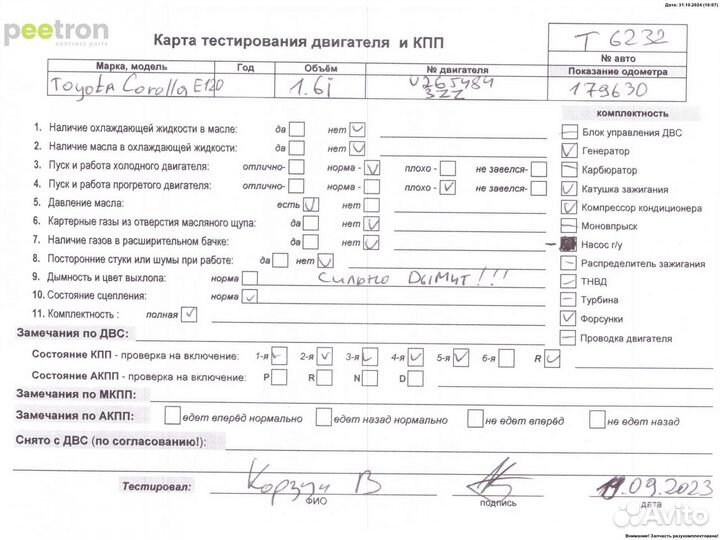 Дата: 31.10.2024 (16:07)
peetron
contract parts
Карта тестирования двигателя и КПП
T 6232
№ авто
Марка, модель Год Объём № двигателя Показание одометра
Toyota Corolla E120 1.6i U265484 179630
3ZZ
комплектность
1. Наличие охлаждающей жидкости в масле: да нет
2. Наличие масла в охлаждающей жидкости: да нет
3. Пуск и работа холодного двигателя: отлично- норма - плохо - не завелся-
4. Пуск и работа прогретого двигателя: отлично- норма - плохо - не завелся-
5. Давление масла: есть нет
6. Картерные газы из отверстия масляного щупа: да нет
7. Наличие газов в расширительном бачке: да нет
8. Посторонние стуки или шумы при работе: да нет
9. Дымность и цвет выхлопа: норма сильно Dымит!!!
10. Состояние сцепления: норма
11. Комплектность : полная
Блок управления ДВС
Генератор
Карбюратор
Катушка зажигания
Компрессор кондиционера
Моновпрыск
Насос г/у
Распределитель зажигания
ТНВД
Турбина
Форсунки
Проводка двигателя
Замечания по ДВС:
Состояние КПП - проверка на включение: 1-я 2-я 3-я 4-я 5-я 6-я R
Состояние АКПП - проверка на включение: P R N D
Замечания по МКПП:
Замечания по АКПП: едет вперёд нормально едет назад нормально не едет вперёд не едет назад
Снято с ДВС (по согласованию!):
Тестировал: Корзун В 19.09.2023
ФИО подпись дата
Avito
Внимание! Запчасть разукомплектована!